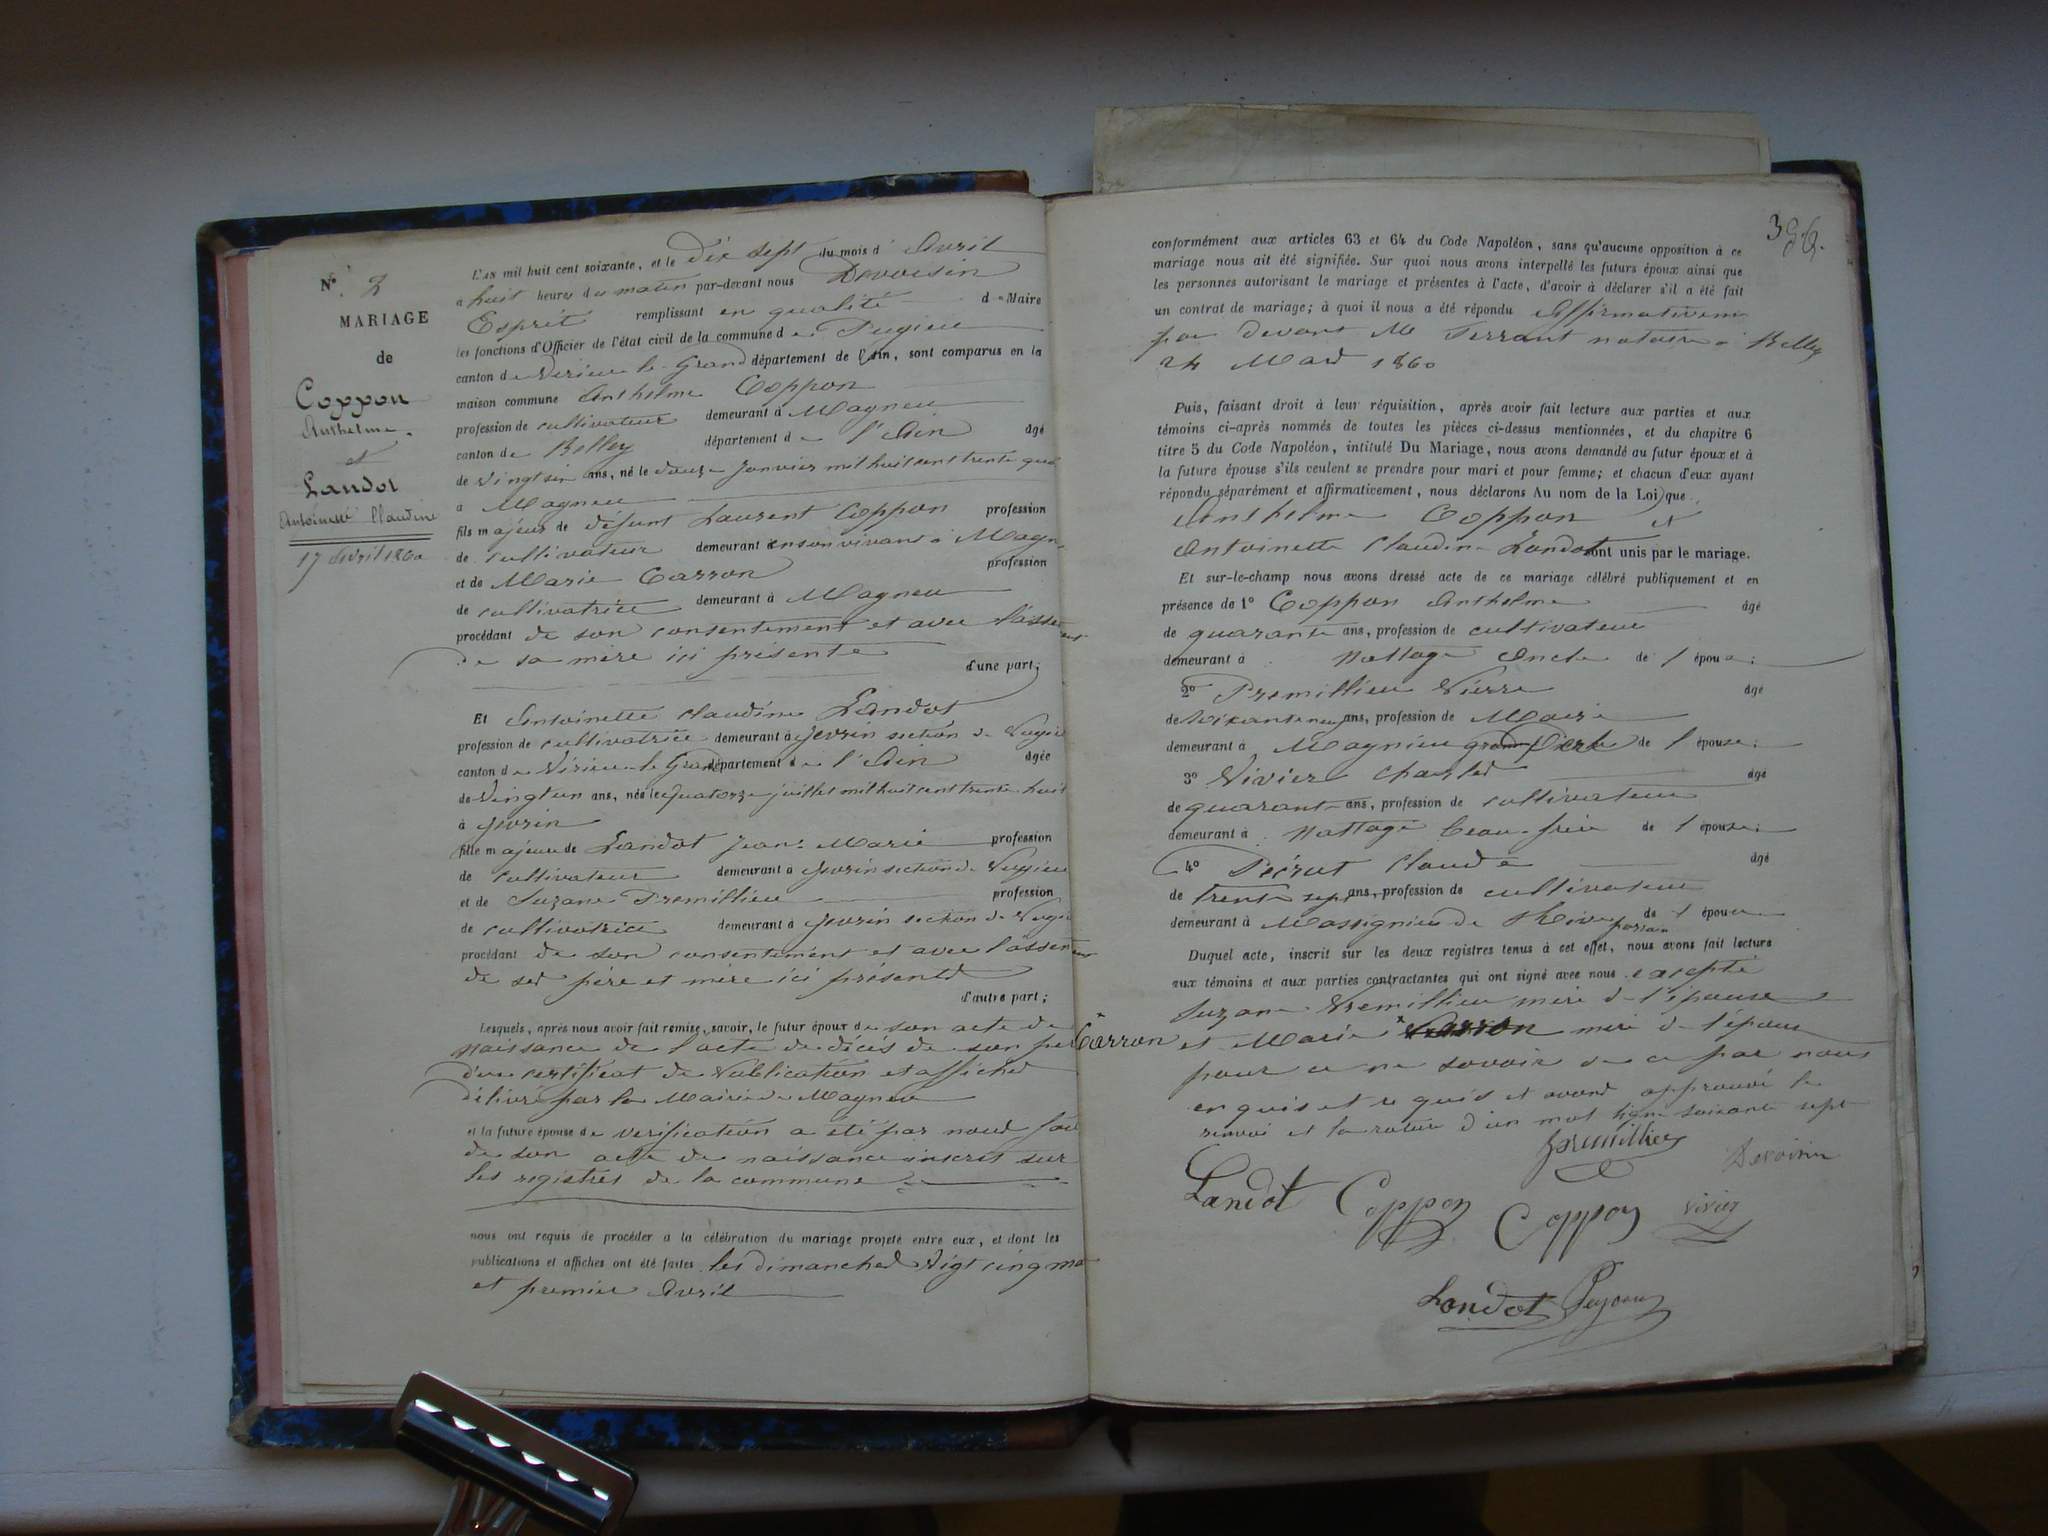 N° 2
MARIAGE
de
Coppon
Anthelme
et
Landot
Antoinette Claudine
17 Avril 1860
L'an mil huit cent soixante, et le Dix sept du mois d' Avril
a huit heures du matin par-devant nous Devoisin
Esprit remplissant en qualité de Maire
les fonctions d'Officier de l'état civil de la commune de Pugieu
canton de Virieu le Grand département de l'Ain, sont comparus en la
maison commune Anthelme Coppon
profession de cultivateur demeurant à Magneu
canton de Belley département de l'Ain âgé
de vingt six ans, né le douze janvier mil huit cent trente qua
a Magneu
fils majeur de défunt Laurent Coppon profession
de cultivateur demeurant en son vivant à Magn
et de Marie Carron profession
de cultivatrice demeurant à Magneu
procédant de son consentement et avec l'assentiment
de sa mère ici présente d'une part;
Et Antoinette Claudine Landot
profession de cultivatrice demeurant à section de Pugieu
canton de Virieu le Grand département de l'Ain âgée
de vingt un ans, née le quatorze juillet mil huit cent trente huit
à
fille majeure de Landot Jean Marie profession
de cultivateur demeurant à section de Pugieu
et de Suzane Premillieu profession
de cultivatrice demeurant à section de Pugieu
procédant de son consentement et avec l'assentiment
de ses père et mère ici présents
d'autre part;
Lesquels, après nous avoir fait remise, savoir, le futur époux de son acte de
naissance de l'acte de décès de son père
d'un certificat de Publication et affiches
délivré par la Mairie de Magneu
et la future épouse de vérification a été par nous fait
de son acte de naissance inscrit sur
les registres de la commune
nous ont requis de procéder a la célébration du mariage projeté entre eux, et dont les
publications et affiches ont été faites les dimanches vigt cinq mars
et premier Avril
396.
conformément aux articles 63 et 64 du Code Napoléon, sans qu'aucune opposition à ce
mariage nous ait été signifiée. Sur quoi nous avons interpellé les futurs époux ainsi que
les personnes autorisant le mariage et présentes à l'acte, d'avoir à déclarer s'il a été fait
un contrat de mariage; à quoi il nous a été répondu Affirmativem
par devant Me notaire à Belley
24 Mars 1860
Puis, faisant droit à leur réquisition, après avoir fait lecture aux parties et aux
témoins ci-après nommés de toutes les pièces ci-dessus mentionnées, et du chapitre 6
titre 5 du Code Napoléon, intitulé Du Mariage, nous avons demandé au futur époux et à
la future épouse s'ils veulent se prendre pour mari et pour femme; et chacun d'eux ayant
répondu séparément et affirmativement, nous déclarons Au nom de la Loi, que
Anthelme Coppon et
Antoinette Claudine Landot sont unis par le mariage.
Et sur-le-champ nous avons dressé acte de ce mariage célébré publiquement et en
présence de 1° Coppon Anthelme âgé
de quarante ans, profession de cultivateur
demeurant à Nattage Oncle de l'époux;
2° Premillieu Pierre âgé
de soixante neuf ans, profession de Maire
demeurant à Magnieu grand Père de l'épouse;
3° Vivier Charles âgé
de quarante ans, profession de cultivateur
demeurant à Nattage beau-frère de l'épouse;
4° Claude âgé
de trente sept ans, profession de cultivateur
demeurant à Massignieu de Rives parrain de l'épouse
Duquel acte, inscrit sur les deux registres tenus à cet effet, nous avons fait lecture
aux témoins et aux parties contractantes qui ont signé avec nous excepté
Suzane Premillieu mère de l'épouse
Carron et Marie mère de l'époux
pour ce ne savoir de ce par nous
enquis et requis et avons approuvé le
renvoi et la rature d'un mot ligne soixante sept
Premillieu
Devoisin
Landot Coppon Coppon vivier
Landot